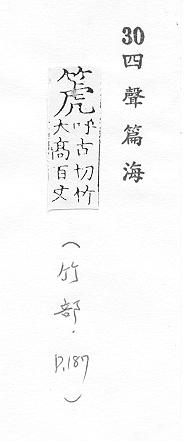 30四聲篇海
䇘呼古切竹
大高百丈
(竹部.
P.187)